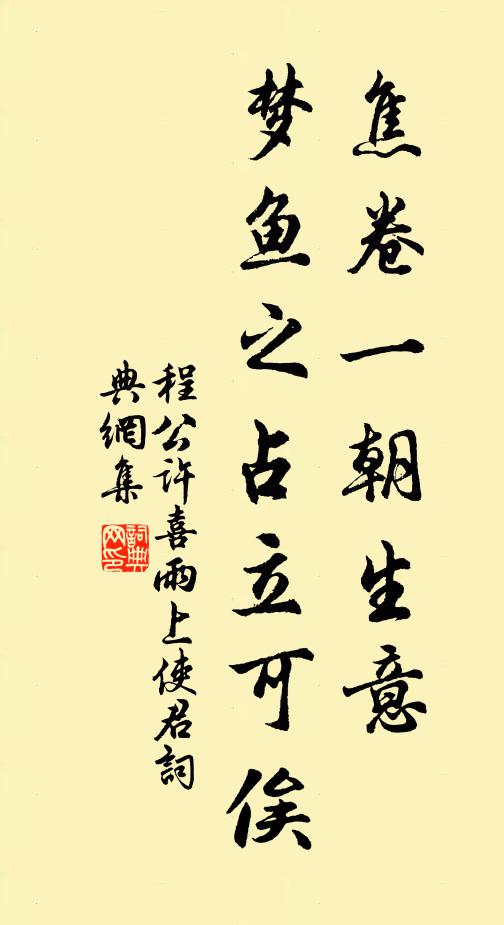 焦卷一朝生意
梦鱼之占立可俟
程公许喜雨上使君詞
典網集
詞典網印